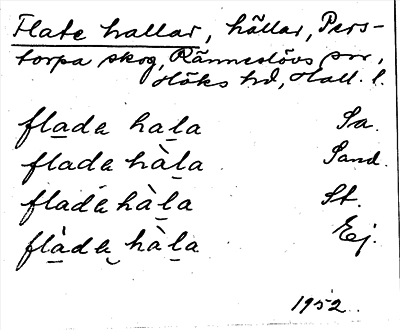 Flate hallar, hällar, Pers-
torpa skog, Ränneslövs sn,
Höks hd, Hall. l.
flada hala Sa.
flada hàla Sand.
flada hàla St.
flàda hàla Ej.
1952